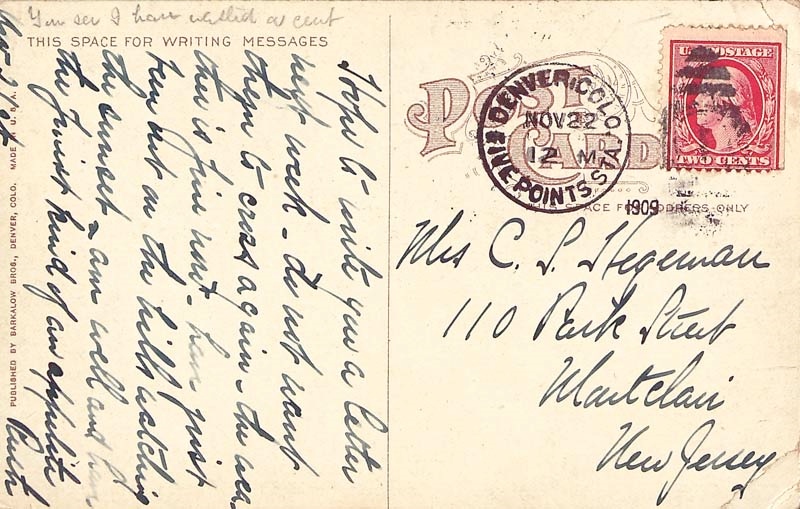 You see I have wasted a cent
THIS SPACE FOR WRITING MESSAGES
Hope to write you a letter
next week - do not want
them to cross again - the wea
ther is fine now - have just
been out on the hills watching
the sunset - am well and have
the finest kind of an appetite
PUBLISHED BY BARKALOW BROS., DENVER, COLO. MADE IN U.S.A.
POST CARD
DENVER, COLO.
NOV 22
12 M
FIVE POINTS STA.
1909
U.S. POSTAGE
TWO CENTS
SPACE FOR ADDRESS ONLY
Mrs C. S. Hegeman
110 Park Street
Montclair
New Jersey